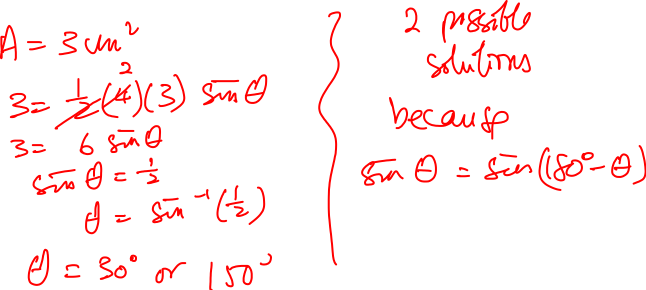 A = 3 cm²
3 = 1/2 (4)(3) sin θ
2
3 = 6 sin θ
sin θ = 1/2
θ = sin⁻¹(1/2)
θ = 30° or 150°
2 possible
solutions
because
sin θ = sin(180° - θ)